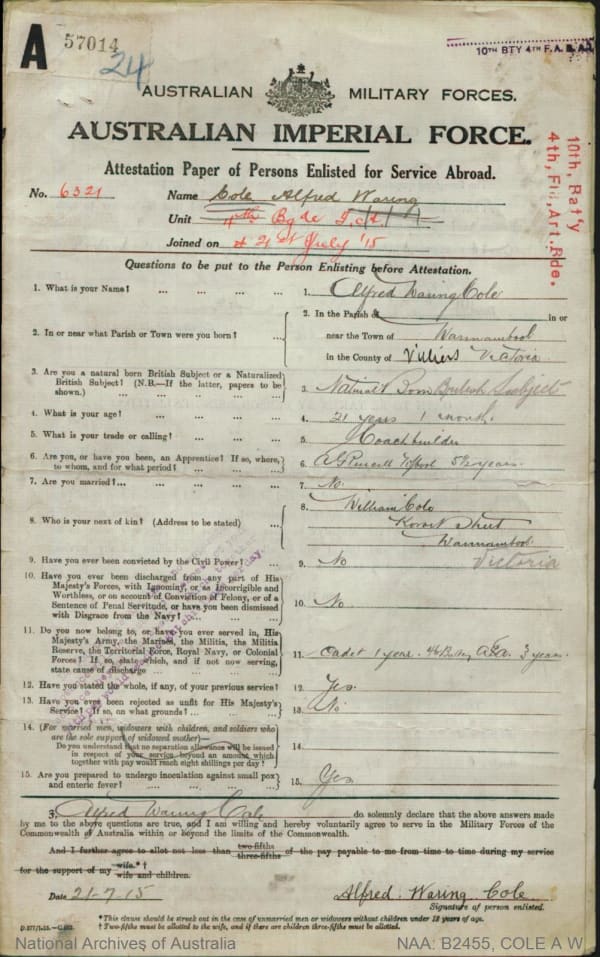 A 57014
24
10TH BTY 4TH F.A.B.
AUSTRALIAN MILITARY FORCES.
AUSTRALIAN IMPERIAL FORCE.
10th, Bat'y
4th, Fld, Art. Bde.
Attestation Paper of Persons Enlisted for Service Abroad.
No. 6321 Name Cole Alfred Waring
Unit 4th Bgde
Joined on 21st July '15
Questions to be put to the Person Enlisting before Attestation.
1. What is your Name? ... ... ... ... 1. Alfred Waring Cole
2. In or near what Parish or Town were you born? ... 2. In the Parish of in or
near the Town of Warrnambool
in the County of Villiers Victoria
3. Are you a natural born British Subject or a Naturalized
British Subject? (N.B.—If the latter, papers to be
shown.) ... ... ... ... 3. Natural Born British Subject
4. What is your age? ... ... ... ... 4. 21 years 1 month.
5. What is your trade or calling? ... ... ... 5. Coachbuilder
6. Are you, or have you been, an Apprentice? If so, where,
to whom, and for what period? ... ... ... 6. 5½ years.
7. Are you married?... ... ... ... ... 7. No.
8. Who is your next of kin? (Address to be stated) ... 8. William Cole
Koroit Street
Warrnambool
Victoria
9. Have you ever been convicted by the Civil Power? ... 9. No
10. Have you ever been discharged from any part of His
Majesty's Forces, with Ignominy, or as Incorrigible and
Worthless, or on account of Conviction of Felony, or of a
Sentence of Penal Servitude, or have you been dismissed
with Disgrace from the Navy? ... ... ... 10. No.
11. Do you now belong to, or have you ever served in, His
Majesty's Army, the Marines, the Militia, the Militia
Reserve, the Territorial Force, Royal Navy, or Colonial
Forces? If so, state which, and if not now serving,
state cause of discharge ... ... ... 11. Cadet 1 year. A.F.A. 3 years.
12. Have you stated the whole, if any, of your previous service? 12. Yes.
13. Have you ever been rejected as unfit for His Majesty's
Service? If so, on what grounds? ... ... ... 13. No
14. (For married men, widowers with children, and soldiers who
are the sole support of widowed mother)—
Do you understand that no separation allowance will be issued
in respect of your service beyond an amount which
together with pay would reach eight shillings per day? 14.
15. Are you prepared to undergo inoculation against small pox
and enteric fever? ... ... ... 15. Yes
I, Alfred Waring Cole do solemnly declare that the above answers made
by me to the above questions are true, and I am willing and hereby voluntarily agree to serve in the Military Forces of the
Commonwealth of Australia within or beyond the limits of the Commonwealth.
And I further agree to allot not less than two-fifths three-fifths of the pay payable to me from time to time during my service
for the support of my wife.*† wife and children.
Date 21-7-15 Alfred. Waring Cole
Signature of person enlisted.
* This clause should be struck out in the case of unmarried men or widowers without children under 18 years of age.
† Two-fifths must be allotted to the wife, and if there are children three-fifths must be allotted.
National Archives of Australia NAA: B2455, COLE A W